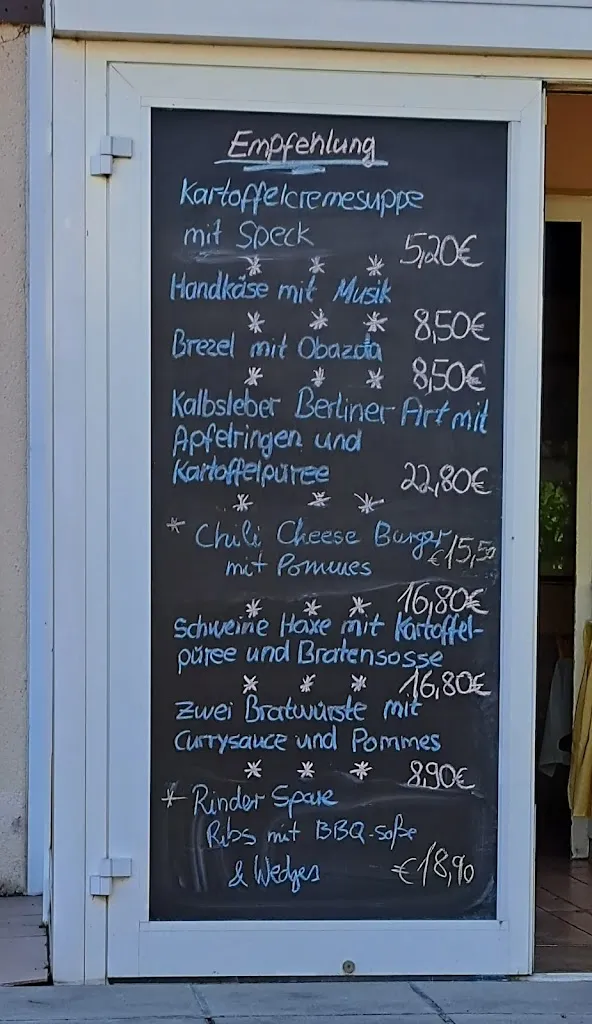 Empfehlung
Kartoffelcremesuppe
mit Speck 5,20€
* * *
Handkäse mit Musik
* * * 8,50€
Brezel mit Obazda
* * * 8,50€
Kalbsleber Berliner Art mit
Apfelringen und
Kartoffelpüree 22,80€
* * *
* Chili Cheese Burger €15,50
mit Pommes
* * * 16,80€
Schweine Haxe mit Kartoffel-
püree und Bratensosse
* * * 16,80€
Zwei Bratwürste mit
Currysauce und Pommes
* * * 8,90€
* Rinder Spare
Ribs mit BBQ-Soße
& Wedges €18,90